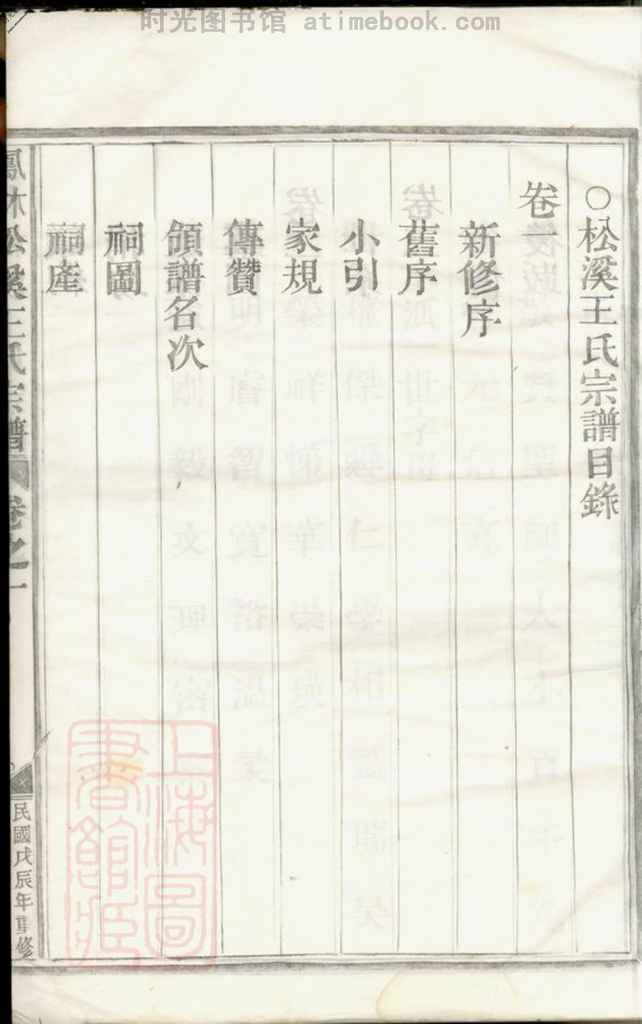 时光图书馆 atimebook.com
○松溪王氏宗譜目錄
卷一
新修序
舊序
小引
家規
傳贊
領譜名次
祠圖
祠產
鳳林松溪王氏宗譜 卷之一
民國戊辰年重修
上海圖書館藏